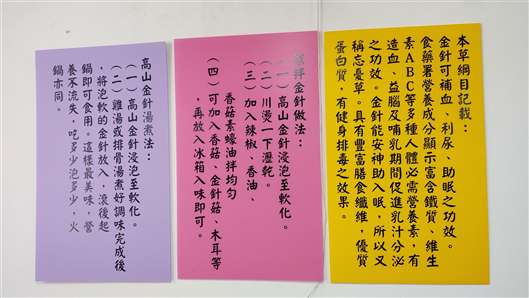 本草綱目記載：
金針可補血、利尿、助眠之功效。
食藥署營養成分顯示富含鐵質、維生
素ABC等多種人體必需營養素，有
造血、益腦及哺乳期間促進乳汁分泌
之功效。金針能安神助入眠，所以又
稱忘憂草。具有豐富膳食纖維，優質
蛋白質，有健身排毒之效果。
拌金針做法：
（一）高山金針浸泡至軟化。
（二）川燙一下瀝乾。
（三）加入辣椒、香油、
香菇素蠔油拌均勻
（四）可加入香菇、金針菇、木耳等
，再放入冰箱入味即可。
高山金針湯煮法：
（一）高山金針浸泡至軟化。
（二）雞湯或排骨湯煮好調味完成後
，將泡軟的金針放入，滾後起
鍋即可食用。這樣最美味，營
養不流失，吃多少泡多少，火
鍋亦同。